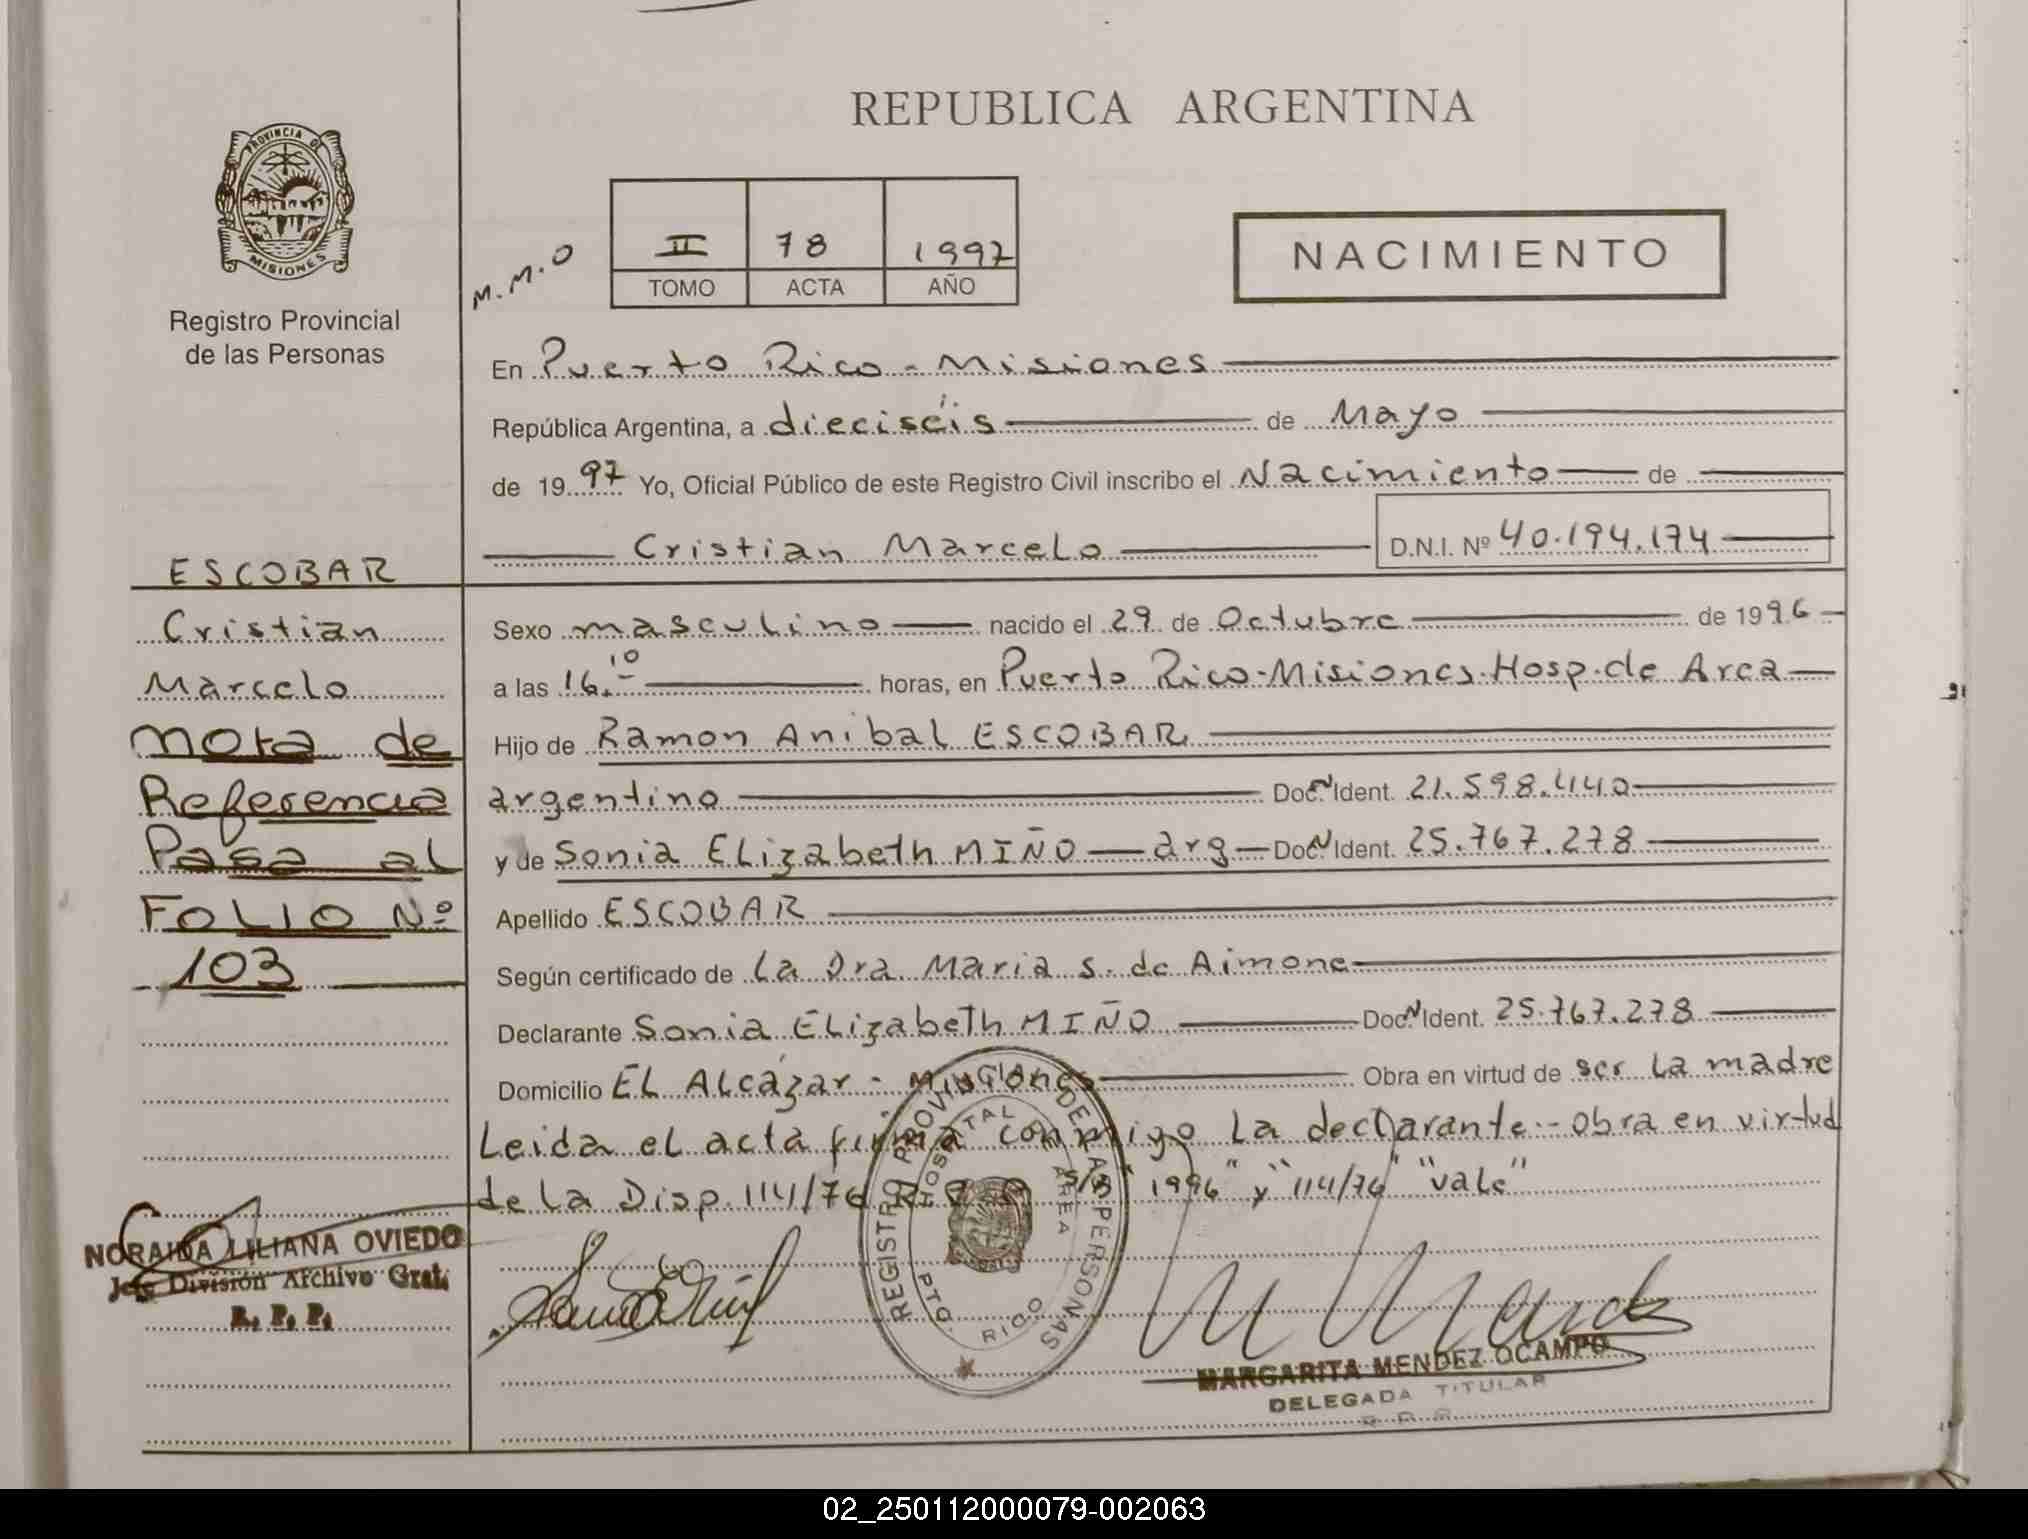 REPUBLICA ARGENTINA
PROVINCIA DE
MISIONES
Registro Provincial
de las Personas
M.M.O
II 78 1997
TOMO ACTA AÑO
NACIMIENTO
En Puerto Rico - Misiones
República Argentina, a dieciséis de Mayo
de 1997 Yo, Oficial Público de este Registro Civil inscribo el Nacimiento de
Cristian Marcelo D.N.I. Nº 40.194.174
ESCOBAR
Cristian
Marcelo
Nota de
Referencia
Pasa al
FOLIO Nº
103
Sexo masculino nacido el 29 de Octubre de 1996
a las 16.10 horas, en Puerto Rico-Misiones-Hosp.de Area
Hijo de Ramon Anibal ESCOBAR
argentino Doc.N Ident. 21.598.440
y de Sonia Elizabeth MIÑO - arg - Doc.N Ident. 25.767.278
Apellido ESCOBAR
Según certificado de La Dra. Maria S. de Aimone
Declarante Sonia Elizabeth MIÑO Doc.N Ident. 25.767.278
Domicilio El Alcázar - Misiones Obra en virtud de ser la madre
Leida el acta firma conmigo la declarante.- Obra en virtud
de la Disp. 114/76 S/B "1996" y "114/76" "vale"
REGISTRO PROVINCIAL DE LAS PERSONAS
HOSPITAL DE AREA
PTO. RICO
NORAIDA LILIANA OVIEDO
Jefe División Archivo Gral.
R. P. P.
MARGARITA MENDEZ OCAMPO
DELEGADA TITULAR
02_250112000079-002063